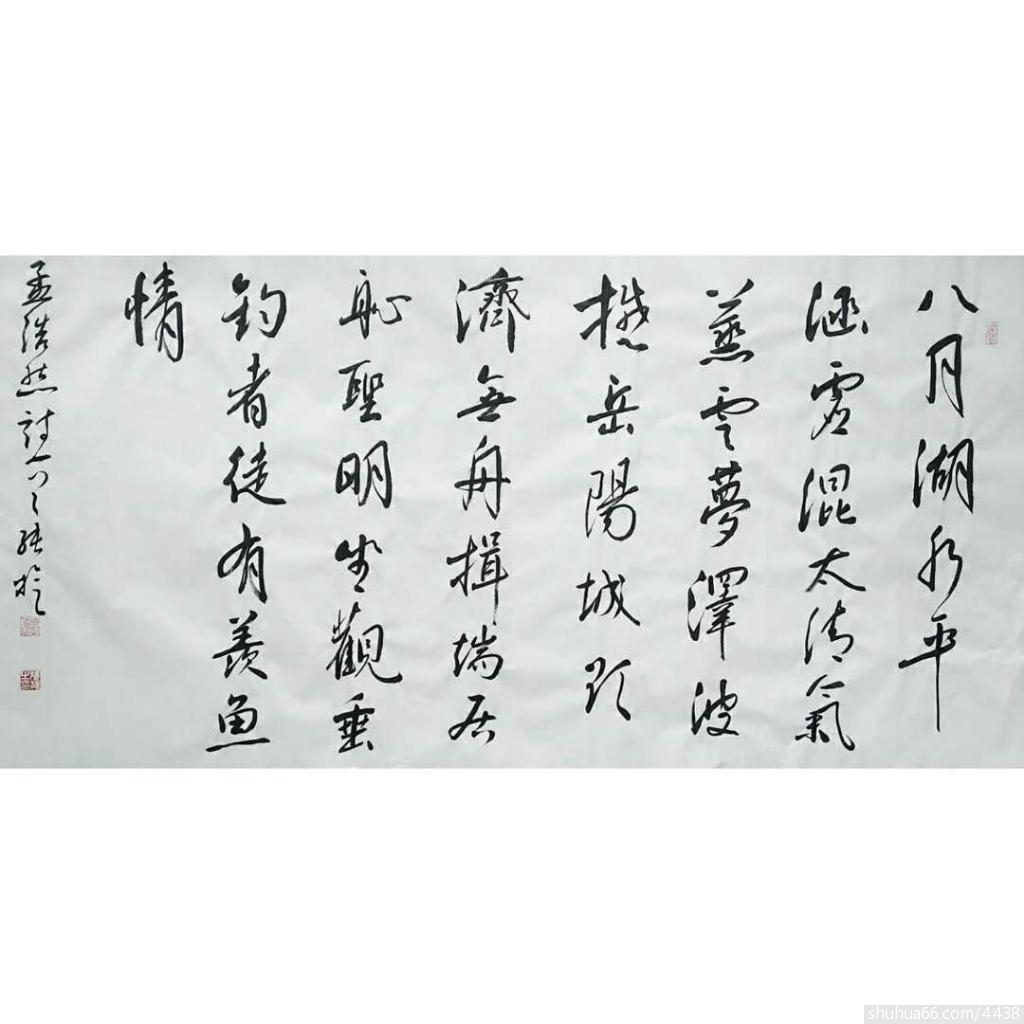 八月湖水平
涵虛混太清氣
蒸雲夢澤波
撼岳陽城欲
濟無舟楫端居
恥聖明坐觀垂
釣者徒有羨魚
情
孟浩然詩
shuhua66.com/4438